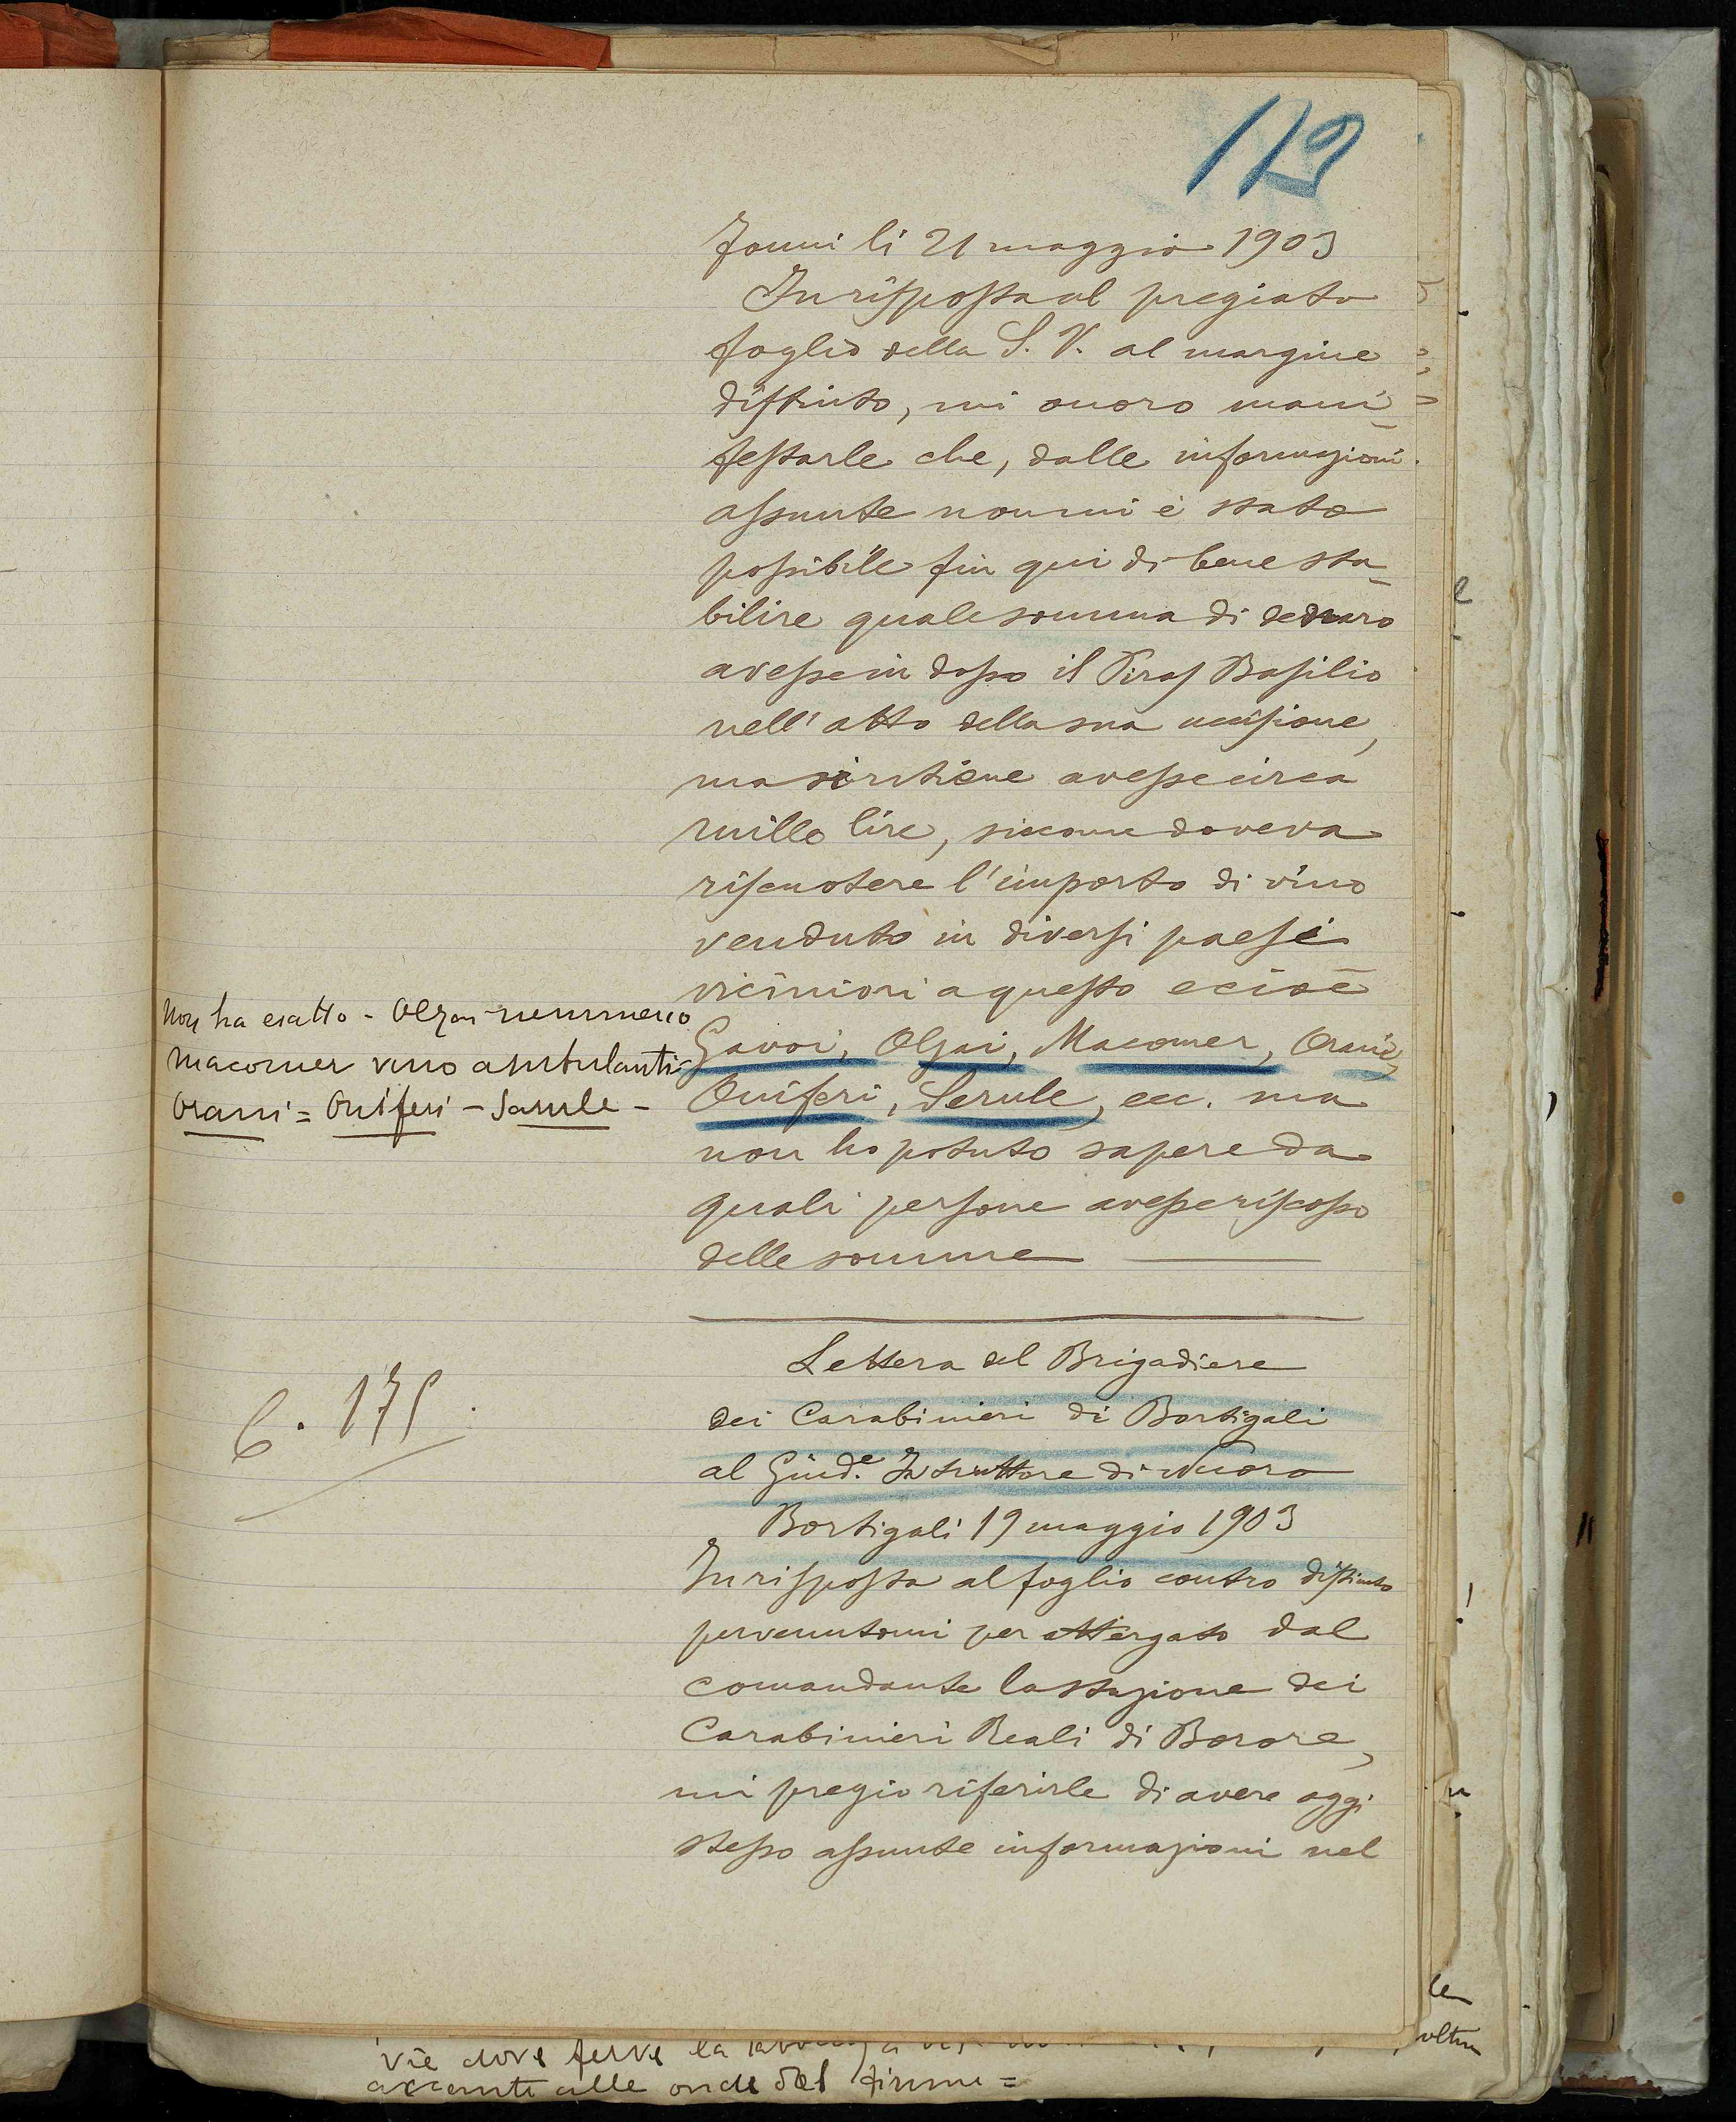 113
Fonni li 21 maggio 1903
In risposta al pregiato
foglio della S. V. al margine
distinto, mi onoro mani
festarle che, dalle informazioni
assunte non mi è stato
possibile fin qui di bene sta
bilire quale somma di denaro
avesse in dosso il Piras Basilio
nell'atto della sua uccisione,
ma si ritiene avesse circa
mille lire, siccome doveva
riscuotere l'importo di vino
venduto in diversi paesi
viciniori a questo e cioè
Gavoi, Olzai, Macomer, Orani,
Oniferi, Serule, ecc. ma
non ho potuto sapere da
quali persone avesse riscosso
delle somme
Non ha esatto - Olzai nemmeno
Macomer vino ambulanti
Orani = Oniferi - Sarule -
Lettera del Brigadiere
dei Carabinieri di Bortigali
al Giud.e Istruttore di Nuoro
C. 175.
Bortigali 19 maggio 1903
In risposta al foglio contro distinto
pervenutomi per attergato dal
comandante la stazione dei
Carabinieri Reali di Borore,
mi pregio riferirle di avere oggi
stesso assunte informazioni nel
vie dove ferve la
accanto alle onde del fiume =